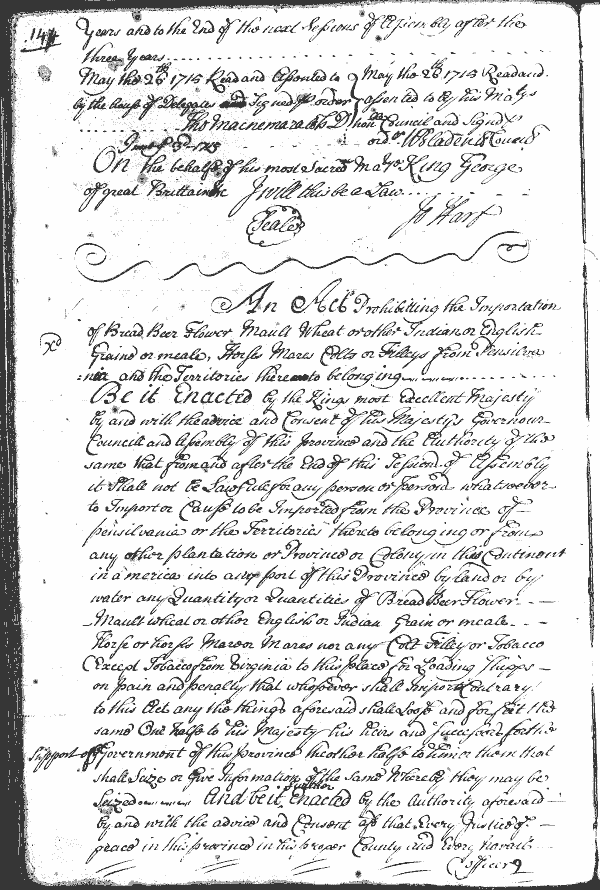 144
Years and to the End of the next Sessions of Assembly after the
three Years
May the 26th 1715 Read and Assented to
by the house of Delegates and Signed p order
Tho Macnemara Cl h D
May the 26th 1715 Read and
assented to by his Matys
hon Council and Signd p
ordr W Bladen Cl Council
June 3d 1715
On the behalfe of his most Sacred Maty King George
of great Brittain &c I will this be a Law
Jo Hart
Seale
An Act Prohibitting the Importation
of Bread Beer Flower Mault Wheat or other Indian or English
Graine or meale, Horses Mares Colts or Filleys from Pensilva
nia and the Territories thereunto belonging
Be it Enacted by the Kings most Excellent Majesty
by and with the advice and Consent of his Majestys Governour
Councill and Assembly of this Province and the Authority of the
same that from and after the End of this Session of Assembly
it shall not be Lawfull for any person or persons whatsoever
to Import or Cause to be Imported from the Province of
Pensilvania or the Territories thereto belonging or from
any other plantation or Province or Colony in this Continent
in america into any port of this Province by land or by
water any Quantity or Quantities of Bread Beer Flower
Mault wheat or other English or Indian Grain or meale
Horse or horses Mare or Mares nor any Colt Filley or Tobacco
Except Tobacco from Virginia to this place for Loading Shipps
on pain and penalty that whosoever shall Import Contrary
to this Act any the things aforesaid shall Loose and forfeit the
same One halfe to his Majesty his heirs and successors for the
Support of Government of this Province the other halfe to him or them that
shall Seize or Give Information of the same Whereby they may be
Seized And be it further Enacted by the Authority aforesaid
by and with the advice and Consent afd that Every Justice of
peace in this province in his proper County and Every Navall
Officer